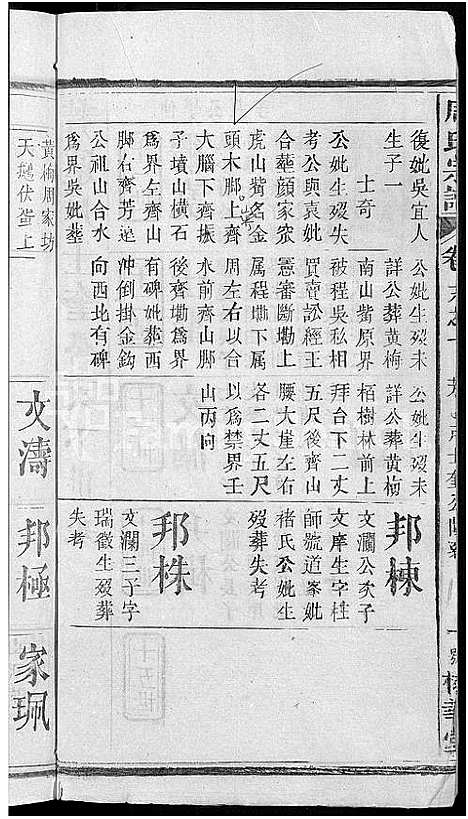 周氏宗譜
卷
復妣吳宜人
生子一
士奇
公妣生歿失
考公與袁妣
合葬顏家窊
虎山觜名金
頭木脚上齊
大腦下齊振
子墳山橫石
為界左齊山
脚右齊芳逵
公祖山合水
為界吳妣葬
公妣生歿未
詳公葬黄梅
南山觜原界
被程吳私相
買賣訟經王
憲審斷墈上
属程墈下属
周左右以合
水前齊山脚
後齊墈為界
有碑妣葬西
冲倒掛金鈎
向西北有碑
公妣生歿未
詳公葬黄梅
栢樹林前上
拜台下二丈
五尺後齊山
腰大崖左右
各二丈五尺
以為禁界壬
山丙向
邦棟
文瀾公次子
文庠生字桂
師號道峯妣
褚氏公妣生
歿葬失考
邦株
文瀾三子字
瑞徵生歿葬
失考
黄梅周家坊
天鵝伏蛋上
文濤
邦極
家珮